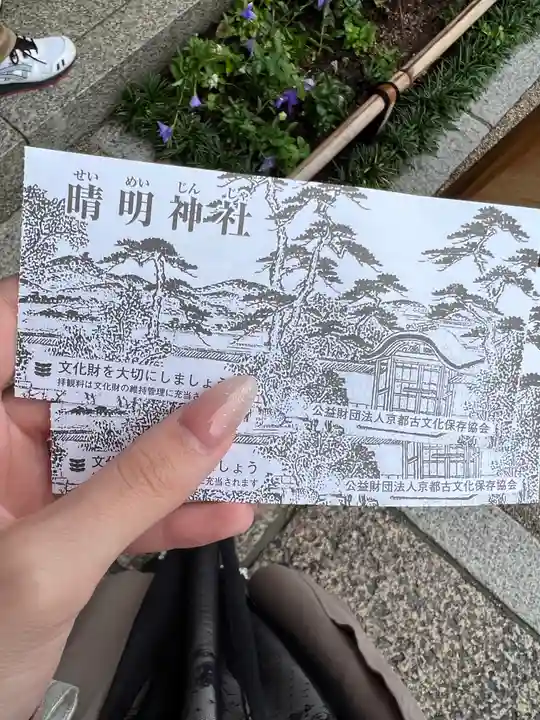 せい めい じん じゃ
晴明神社
文化財を大切にしましょう
拝観料は文化財の維持管理に充当さ
公益財団法人京都古文化保存協会
文 しょう
に充当されます
公益財団法人京都古文化保存協会